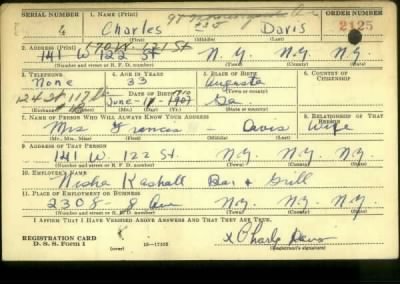 SERIAL NUMBER 1. NAME (Print) ORDER NUMBER
Charles Davis 2125
(First) (Middle) (Last)
2. ADDRESS (Print)
141 W 122 St. N.Y. N.Y.
(Number and street or R. F. D. number) (Town) (County) (State)
3. TELEPHONE 4. AGE IN YEARS 5. PLACE OF BIRTH 6. COUNTRY OF CITIZENSHIP
None 33 Augusta
DATE OF BIRTH (Town or county)
June-11-1907 Ga.
(Exchange) (No.) (Mo.) (Day) (Yr.) (State or country)
7. NAME OF PERSON WHO WILL ALWAYS KNOW YOUR ADDRESS 8. RELATIONSHIP OF THAT PERSON
Mrs Frances - Davis Wife
(Mr., Mrs., Miss) (First) (Middle) (Last)
9. ADDRESS OF THAT PERSON
141 W. 122 St. N.Y. N.Y. N.Y.
(Number and street or R. F. D. number) (Town) (County) (State)
10. EMPLOYER'S NAME
Bar & Grill
11. PLACE OF EMPLOYMENT OR BUSINESS
2308 - 8 Ave N.Y. N.Y. N.Y.
(Number and street or R. F. D. number) (Town) (County) (State)
I AFFIRM THAT I HAVE VERIFIED ABOVE ANSWERS AND THAT THEY ARE TRUE.
REGISTRATION CARD
D. S. S. Form 1 (over) 16-17105 (Registrant's signature)
x Charly Davis